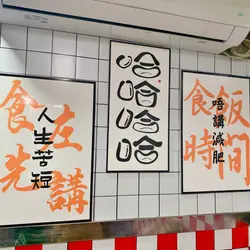 食左
先講
人生苦短
哈
哈
哈
哈
食飯
時間
唔講減肥